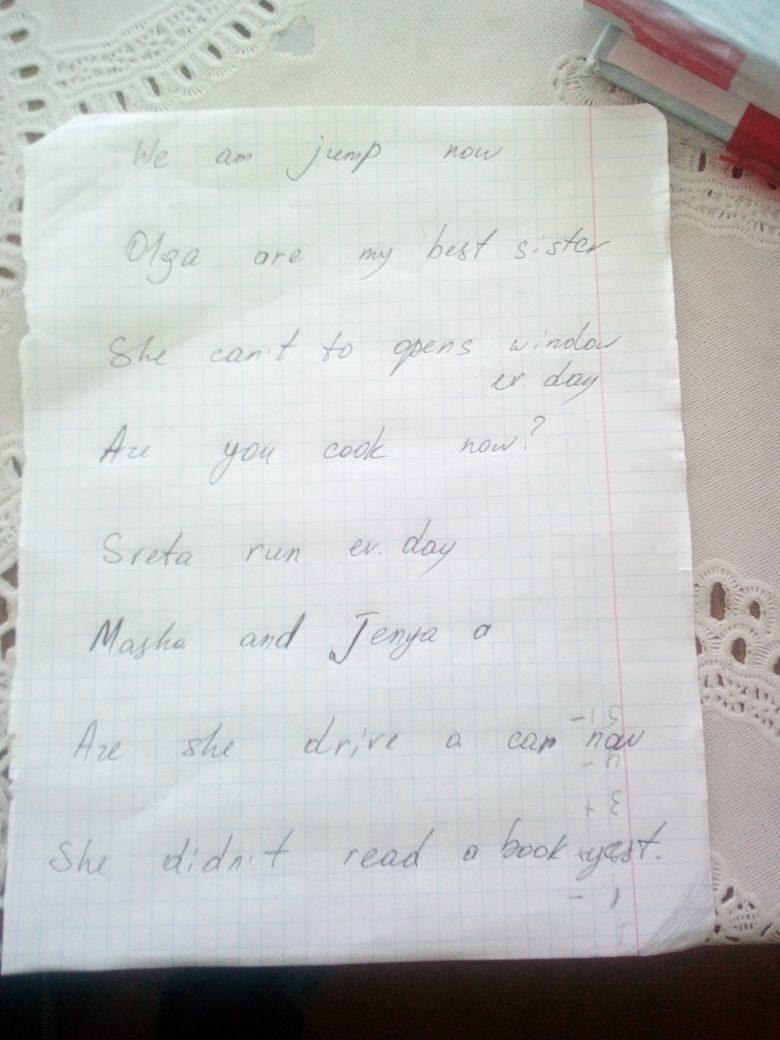 We am jump now
Olga are my best sister
She can't to opens window
ev. day
Are you cook now?
Sveta run ev. day
Masha and Jenya a
Are she drive a car now
She didn't read a book yest.